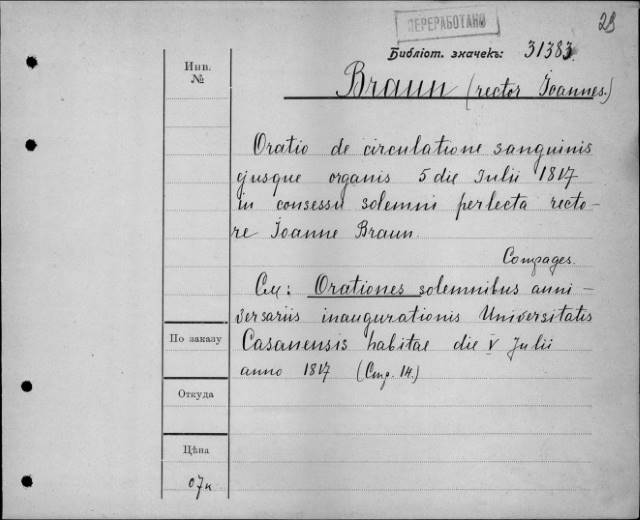 ПЕРЕРАБОТАНО
28
Библіот. значекъ: 31383.
Инв.
№
Braun (rector Ioannes.)
Oratio de circulatione sanguinis
ejusque organis 5 die Iulii 1817
in consessu solemni perlecta recto-
re Ioanne Braun.
См: Orationes solemnibus anni-
versariis inaugurationis Universitatis
По заказу
Casanensis habitae die V Julii
anno 1817 (Стр. 14.)
Откуда
Цѣна
07к